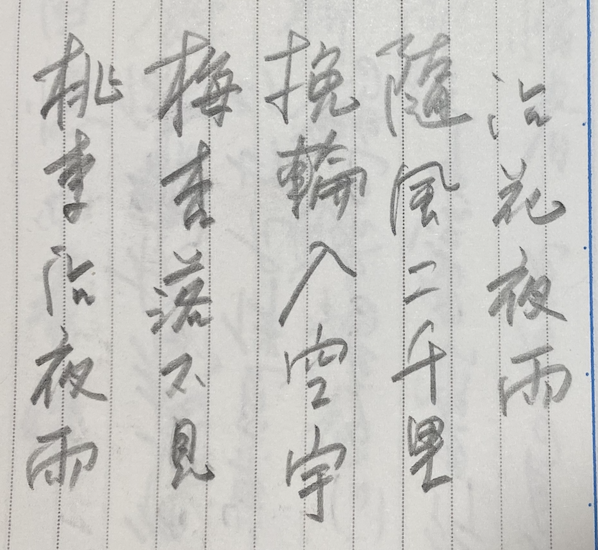 沾花夜雨
隨風二千里
挽輪入空宇
梅杏落不見
桃李沾夜雨